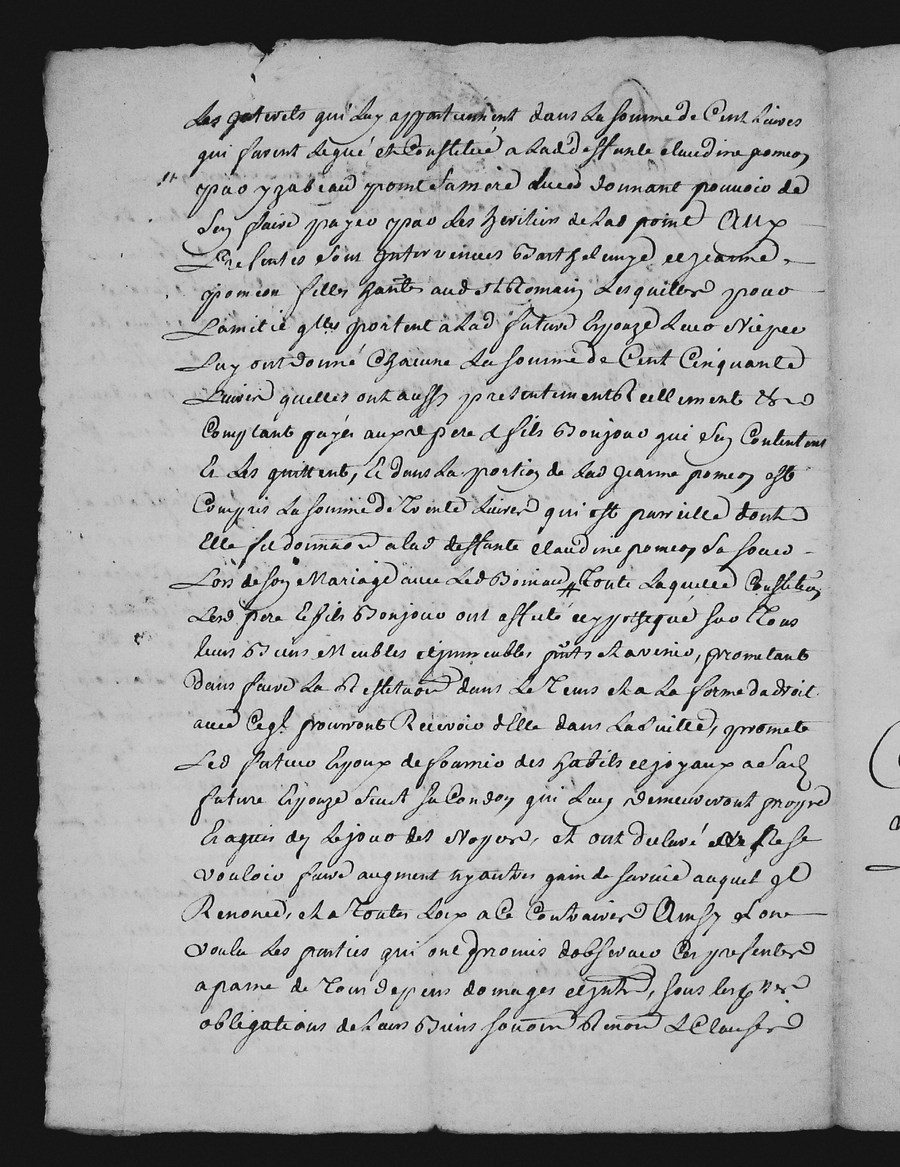 Les Interets qui Luy appartiennent dans La Somme de Cent Livres
qui furent Legué et Constitué a Lad' deffunte claudine pomeon
par yzabeau point Sa mere donnant pouvoir de
Sen faire payer par Les heritiers de Lad point Aux
Presentes Sont Intervenues Barthelemye et jeanne
pomeon filles hantes aud St Romain Lesquelles pour
Lamitié qlles portent a Lad future Epouze Leur Niepce
Luy ont donné Chacune La Somme de Cent Cinquante
Livres quelles ont aussy presentement Reellement &
Comptant payés auxd pere & fils Bonjour qui Sen Contentent
Et Les quittent, Et dans La portion de Lad Jeanne pomeon est
Compris La Somme de Trente Livres qui est pareille dont
Elle fit donnaon a Lad deffunte claudine pomeon Sa Soeur
Lors de Son Mariage avec Led # Toute Laquelle Constitûon
Lesd pere Et fils Bonjour ont affecté et ypothequé Sur Tous
leurs Biens Meubles et jmmeubles pnts et avenir, promettant
Den faire La Restituon dans Le Tems et a La forme du droit
avec Ce ql pourront Recevoir delle dans La Suitte, promet
Led futur Epoux de fournir des habits et joyaux a Sad
future Epouze Suivt Sa Condon qui Luy demeureront propre
Et aquis des Le jour des Nopces, et ont declaré Ne Se
vouloir faire augment ny autres gain de Survie auquel Il
Renonce, et a Toutes Loix a Ce Contraires Ainsy Lont
voulu Les parties qui ont promis dobServer Ces presentes
a paine de Tous depens domages et jnts, Sous Les
obligations de Leurs Biens Renon & Clauses